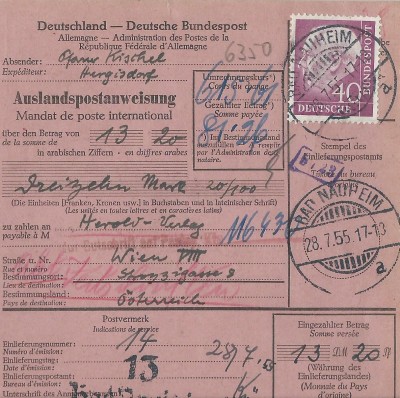 Deutschland — Deutsche Bundespost
Allemagne — Administration des Postes de la
République Fédérale d'Allemagne
6350
Absender:
Expéditeur:
Hergisdorf
Auslandspostanweisung
Mandat de poste international
Umrechnungskurs*)
Gezahlter Betrag
Somme payée
*) Im Bestimmungsland
auszufüllen
par l'Administration de
BAD NAUHEIM
40
DEUTSCHE
BUNDESPOST
über den Betrag von 13 20
de la somme de in arabischen Ziffern - en chiffres arabes
Stempel des
Einlieferungspostamts
Dreizehn Mark 20/100
(Die Einheiten (Franken, Kronen usw.) in Buchstaben und in lateinischer Schrift)
(Les unités en toutes lettres et en caractères latins)
zu zahlen an Herold-Verlag
payable à M
116436
BAD NAUHEIM
28.7.55.17-18
a
Straße u. Nr. Wien VIII
Rue et numéro
Bestimmungsort Strozzigasse 8
Lieu de destination
Bestimmungsland Österreich
Pays de destination
Postvermerk
Indications de service
Eingezahlter Betrag
Somme versée
Einlieferungsnummer: 14
Numéro d'émission:
Einlieferungstag: 28/7. 55
Date d'émission: 13
Einlieferungspostanstalt:
Bureau d'émission:
Unterschrift des
13 DM 20 Pf
(Währung des
Einlieferungslandes)
(Monnaie du Pays
d'origine)